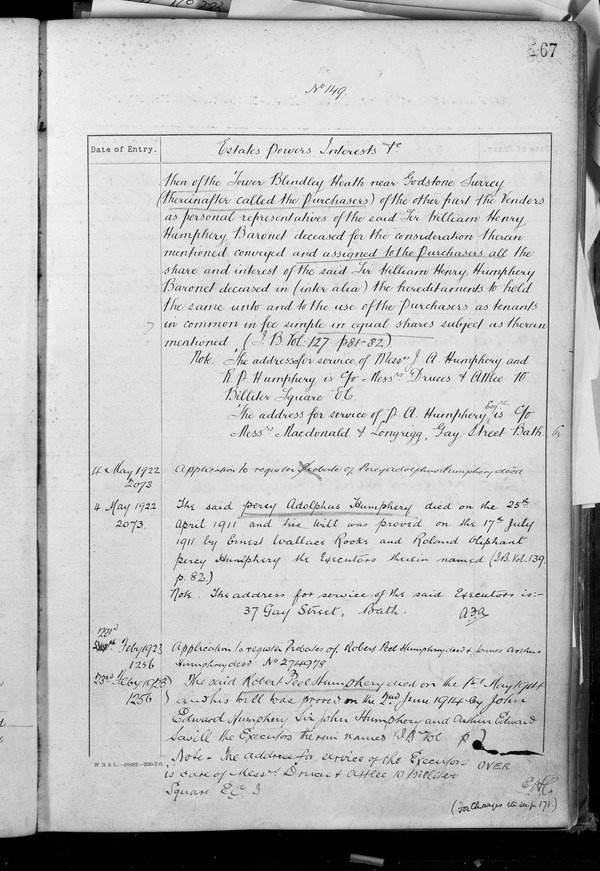 67
No 149.
Date of Entry.
Estates Powers Interests &c
then of the Tower Blindley Heath near Godstone Surrey
(thereinafter called the Purchasers) of the other part the Vendors
as personal representatives of the said Sir William Henry
Humphery Baronet deceased for the consideration therein
mentioned conveyed and assigned to the Purchasers all the
share and interest of the said Sir William Henry Humphery
Baronet deceased in (inter alia) the hereditaments to hold
the same unto and to the use of the Purchasers as tenants
in common in fee simple in equal shares subject as therein
mentioned. (I.B. Vol. 127 p 81-82)
Note. The address for service of Messrs J. A. Humphery and
R P Humphery is c/o Messrs Druces & Attlee 10
Billiter Square E.C.
The address for service of P. A. Humphery Esqre is c/o
Messrs Macdonald & Longrigg, Gay Street Bath.
4 May 1922
2073
Application to register Probate of Percy Adolphus Humphery decd
4 May 1922
2073.
The said Percy Adolphus Humphery died on the 25th
April 1911 and his Will was proved on the 17th July
1911 by Ernest Wallace Rooke and Roland Oliphant
Percy Humphery the Executors therein named (I.B. Vol. 139.
p. 82.)
Note. The address for service of the said Executors is:-
37 Gay Street, Bath.
Feby 1923
1256
Application to register Probates of Robert Peel Humphery decd & James Arthur
Humphery decd No 274978
23rd Feby 1923
1256
The said Robert Peel Humphery died on the 1st May 1914
and his Will was proved on the 2nd June 1914 by John
Edward Humphery Sir John Humphery and Arthur Edward
Savill the Executors therein named (I.B. Vol p
Note - The address for service of the Executors
is care of Messrs Druces & Attlee 10 Billiter
Square E.C. 3
OVER
(For Charges etc see p. 171.)
W B & L